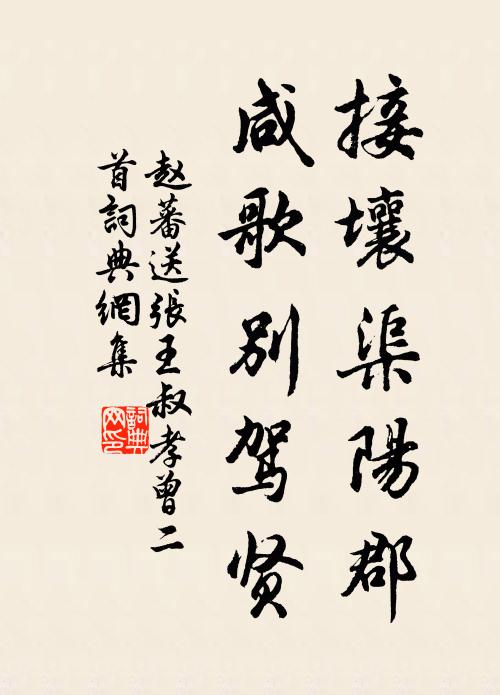 接壤渠陽郡
咸歌别駕贤
赵蕃送張王叔孝曾二
首詞典網集
詞典
网印